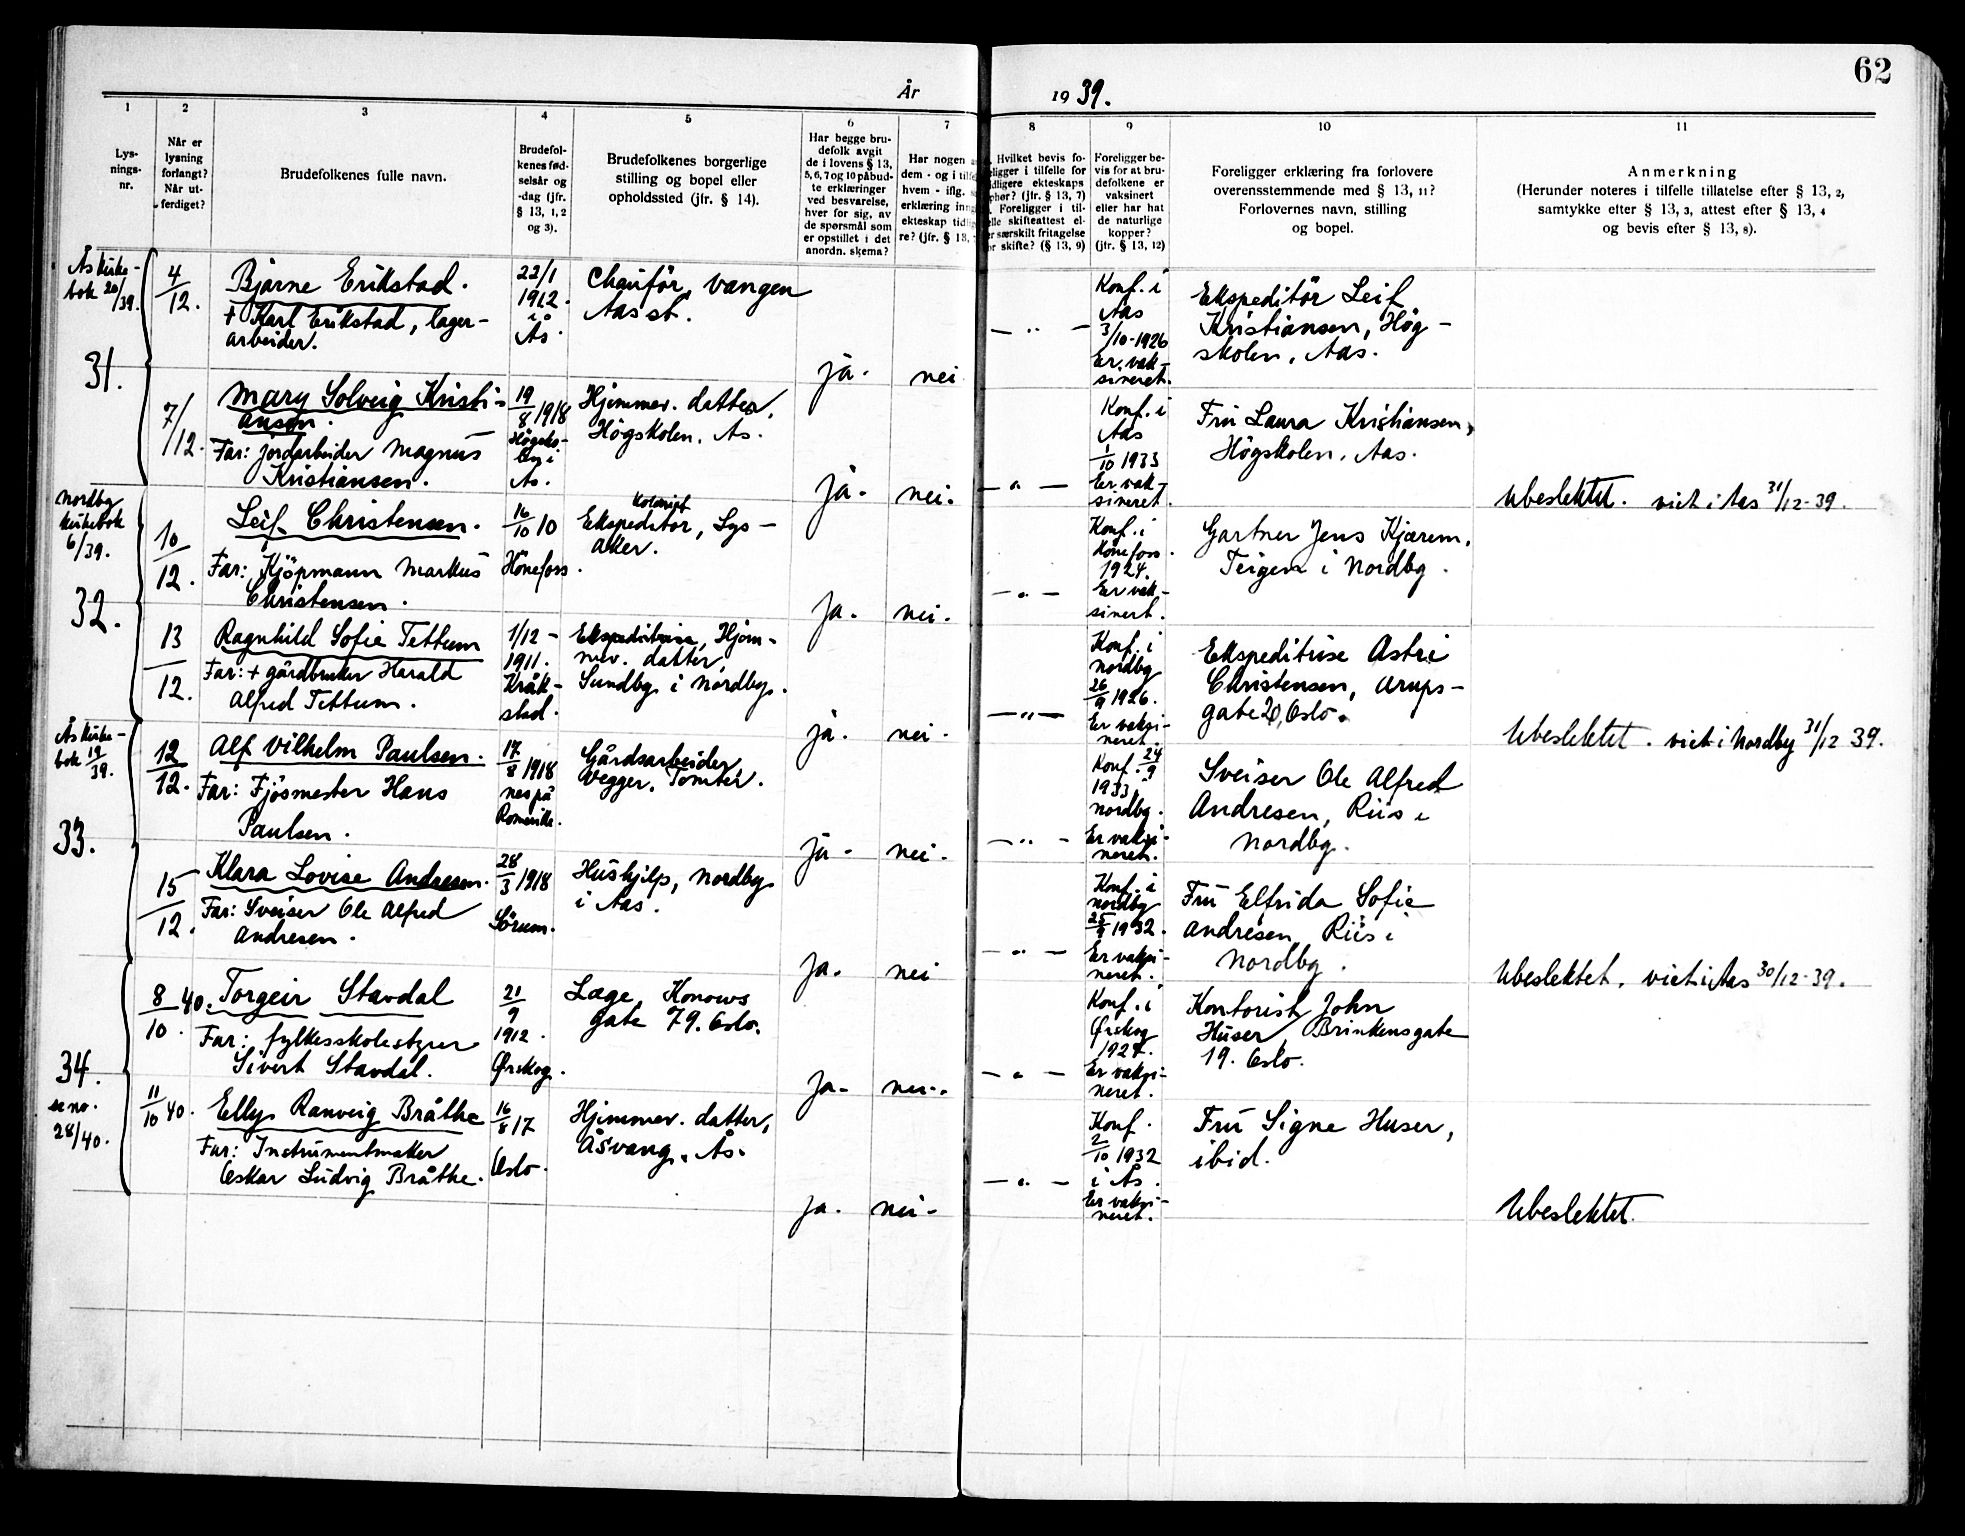 62
År
19 39.
1
2
3
4
5
6
7
8
9
10
11
Lys-
nings-
nr.
Når er
lysning
forlangt?
Når ut-
ferdiget?
Brudefolkenes fulle navn.
Brudefol-
kenes fød-
selsår og
-dag (jfr.
§ 13, 1, 2
og 3).
Brudefolkenes borgerlige
stilling og bopel eller
opholdssted (jfr. § 14).
Har begge bru-
defolk avgit
de i lovens § 13,
5, 6, 7 og 10 påbud-
te erklæringer
ved besvarelse,
hver for sig, av
de spørsmål som
er opstillet i det
anordn. skema?
Har nogen a
dem - og i tilfe
hvem - iflg. s
erklæring inng
ekteskap tidlig
re? (jfr. § 13,
Hvilket bevis fo-
eligger i tilfelle for
idligere ekteskaps
phør? (jfr. § 13, 7)
Foreligger i til-
elle skifteattest el-
er særskilt fritagelse
or skifte? (§ 13, 9)
Foreligger be-
vis for at bru-
defolkene er
vaksinert
eller har hat
de naturlige
kopper?
(jfr. § 13, 12)
Foreligger erklæring fra forlovere
overensstemmende med § 13, 11?
Forlovernes navn, stilling
og bopel.
Anmerkning
(Herunder noteres i tilfelle tillatelse efter § 13, 2,
samtykke efter § 13, 3, attest efter § 13, 4
og bevis efter § 13, 8).
Ås kirke-
bok 20/39.
31.
4/12.
Bjarne Erikstad.
+ Karl Erikstad, lager-
arbeider.
22/1
1912.
i
Ås.
Chauför, Vangen
Aas st.
ja.
nei
— " —
Konf. i
Aas
3/10-1926
Er vak-
sineret.
Ekspeditör Leif
Kristiansen, Hög-
skolen, Aas.
7/12.
Mary Solveig Kristi-
ansen.
Far: jordarbeider Magnus
Kristiansen.
19/8 1918
Högsko-
len i
Ås.
Hjemmev. datter,
Högskolen, Ås.
ja.
nei.
— " —
Konf. i
Aas
1/10 1933
Er vak-
sineret.
Fru Laura Kristiansen,
Högskolen, Aas.
Ubeslektet. viet i Aas 31/12-39.
Nordby
kirkebok
6/39.
32.
10/12.
Leif Christensen.
Far: Kjöpmann Markus
Christensen.
16/10 10
Hönefoss.
Kolonial
Ekspeditör, Lys-
aker.
ja.
nei.
— " —
Konf. i
Hönefoss.
1924.
Er vak-
sinert.
Gartner Jens Kjærem,
Teigen i Nordby.
13/12.
Ragnhild Sofie Tettum
Far: + gårdbruker Harald
Alfred Tettum.
1/12-
1911.
Kråk-
stad.
Ekspeditrise, Hjem-
mev. datter,
Sundby i Nordby.
ja.
nei.
— " —
Konf. i
Nordby
26/9 1926.
Er vaksi-
neret.
Ekspeditrise Astri
Christensen, Arups-
gate 20, Oslo.
Ubeslektet. viet i Nordby 31/12 39.
Ås kirke-
bok 19/39.
33.
12/12.
Alf Vilhelm Paulsen.
Far: Fjösmester Hans
Paulsen.
17/8 1918
nes på
Romerike.
Gårdsarbeider,
Vegger, Tomter.
ja.
nei.
— " —
Konf. 24/9
1933
Nordby.
Er vaksi-
neret.
Sveiser Ole Alfred
Andresen, Riis i
Nordby.
15/12.
Klara Lovise Andresen.
Far: Sveiser Ole Alfred
Andresen.
28/3 1918
Sörum.
Hushjelp, Nordby
i Aas.
ja.
nei
— " —
Konf. i
Nordby
25/9 1932.
Er vaksi-
neret.
Fru Elfrida Sofie
Andresen, Riis i
Nordby.
Ubeslektet. viet i Aas 30/12-39.
34.
se no.
28/40.
8/10. 40.
Torgeir Stavdal
Far: fylkesskolestyrer
Sivert Stavdal.
21/9
1912.
Ørskog.
Læge, Konows
gate 79. Oslo.
ja.
nei.
— " —
Konf. i
Ørskog
1927.
Er vaksi-
neret.
Kontorist John
Huser, Brinkensgate
19. Oslo.
11/10 40.
Elly Ranveig Bråthe
Far: Instrumentmaker
Oskar Ludvig Bråthe.
16/8 17
Oslo.
Hjemmev. datter,
Åsvang, Ås.
ja.
nei.
— " —
Konf.
2/10 1932
i Ås.
Er vaksi-
neret.
Fru Signe Huser,
ibid.
Ubeslektet.